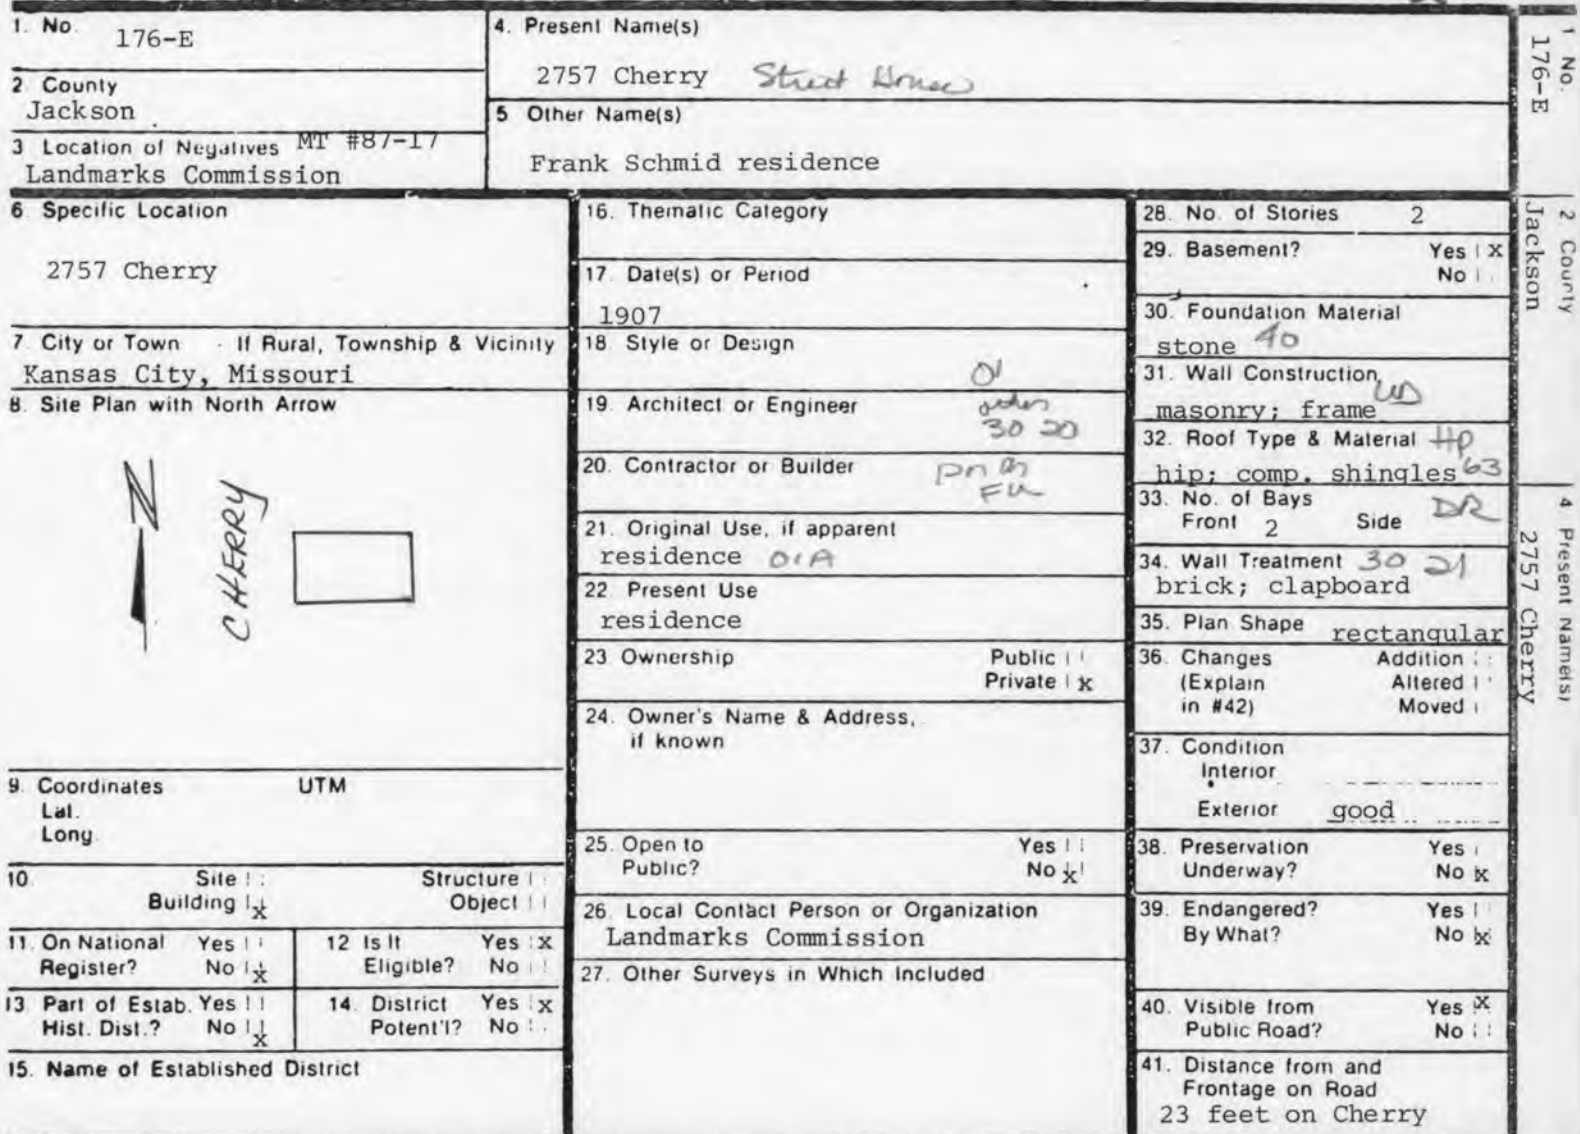 1. No. 176-E
2. County
Jackson
3 Location of Negatives MT #87-17
Landmarks Commission
4. Present Name(s)
2757 Cherry Street House
5 Other Name(s)
Frank Schmid residence
6. Specific Location
2757 Cherry
7. City or Town If Rural, Township & Vicinity
Kansas City, Missouri
8. Site Plan with North Arrow
N
CHERRY
9. Coordinates UTM
Lat.
Long.
10. Site Structure
Building x Object
11. On National Yes
Register? No x
12 Is It Yes x
Eligible? No
13. Part of Estab. Yes
Hist. Dist.? No x
14. District Yes x
Potent'l? No
15. Name of Established District
16. Thematic Category
17. Date(s) or Period
1907
18. Style or Design
19. Architect or Engineer
30 20
20. Contractor or Builder
21. Original Use, if apparent
residence 01A
22. Present Use
residence
23 Ownership Public
Private x
24. Owner's Name & Address,
if known
25. Open to Yes
Public? No x
26. Local Contact Person or Organization
Landmarks Commission
27. Other Surveys in Which Included
28. No. of Stories 2
29. Basement? Yes x
No
30. Foundation Material
stone 40
31. Wall Construction
masonry; frame WD
32. Roof Type & Material HP
hip; comp. shingles 63
33. No. of Bays
Front 2 Side DR
34. Wall Treatment 30 21
brick; clapboard
35. Plan Shape rectangular
36. Changes Addition
(Explain Altered
in #42) Moved
37. Condition
Interior
Exterior good
38. Preservation Yes
Underway? No x
39. Endangered? Yes
By What? No x
40. Visible from Yes x
Public Road? No
41. Distance from and
Frontage on Road
23 feet on Cherry
1 No.
176-E
2 County
Jackson
4 Present Name(s)
2757 Cherry